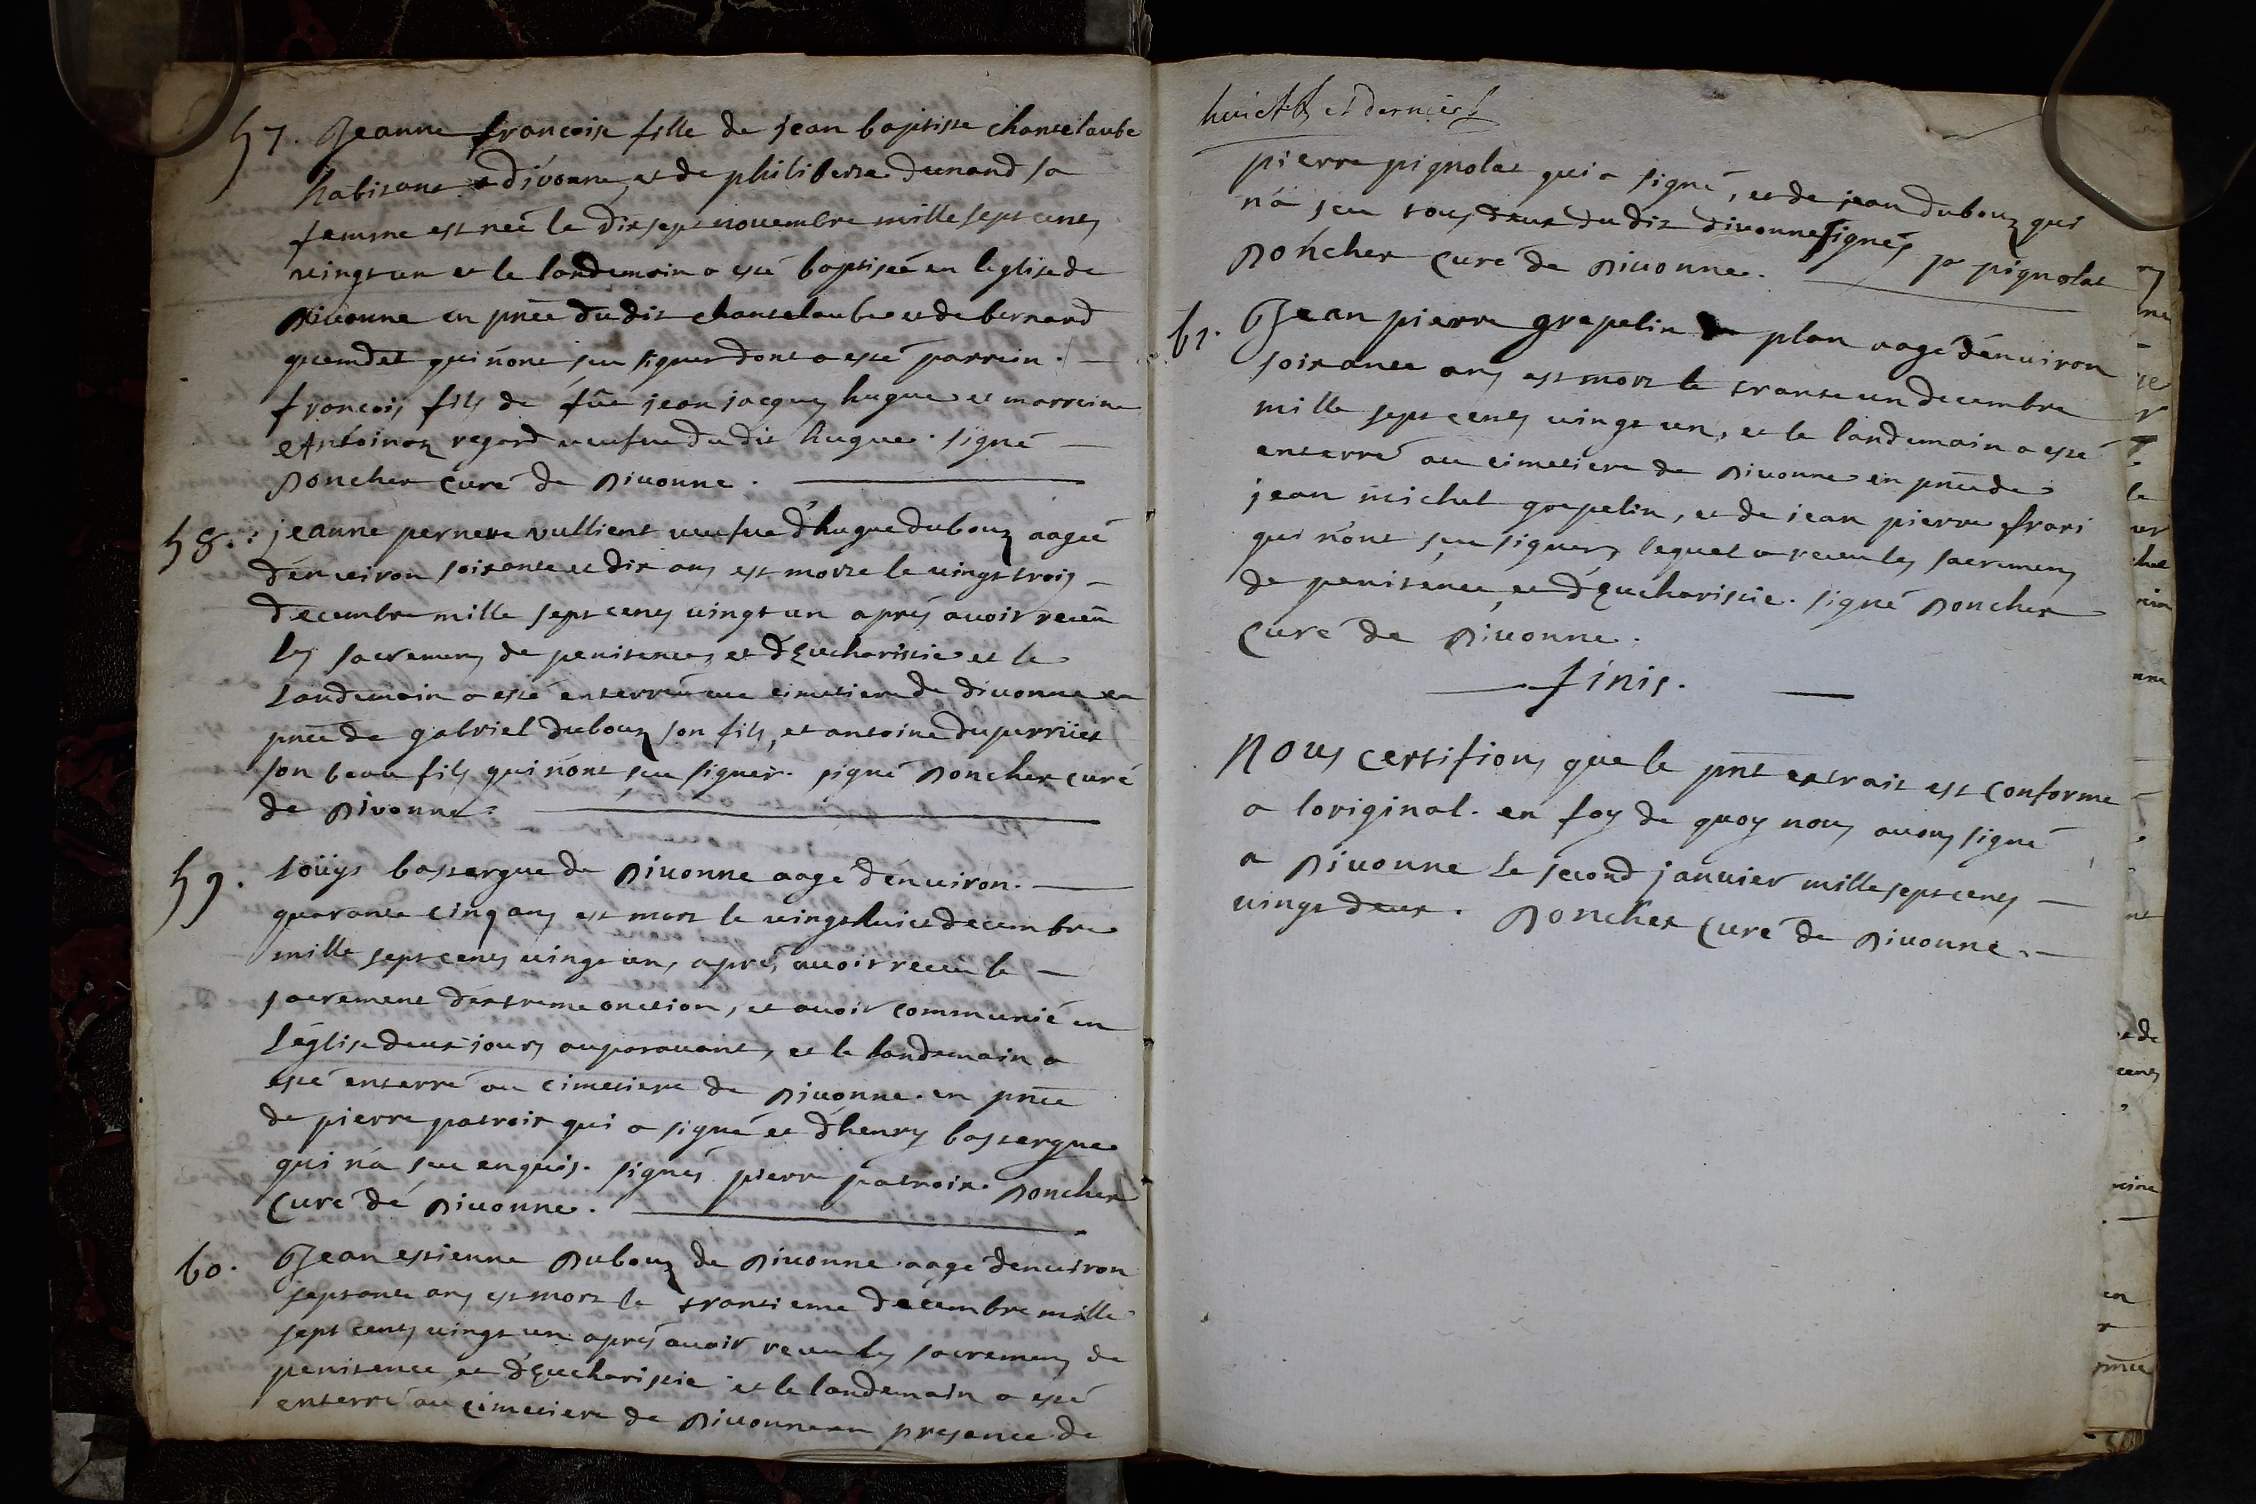 57. Jeanne francoise fille de jean baptiste chanteloube
habitant a divonne, et de philiberte dunand sa
femme est neé le dixsept novembre mille sept cents
vingt un et le landemain a esté baptiseé en leglise de
Divonne en pñce du dit chanteloube et de bernard
guendet qui n'ont sceu signer dont a esté parrein.
francois fils de fûe jean jacques hugue et marreine
Antoinaz regard veufue du dit hugue. signé
Poncher Curé de Divonne.
58. jeanne pernete vullient veufue d'hugue dubouz aageé
d'environ soixante et dix ans est morte le vingt trois
decembre mille sept cents vingt un aprés avoir receu
les sacremens de penitence, et d'Eucharistie et le
landemain a esté enterreé au cimetiere de divonne en
pñce de gabriel dubouz son fils, et antoine duperriier
son beau fils qui n'ont sceu signer. signé Poncher curé
de Divonne.
59. Loüys bassergue de Divonne aagé d'environ.
quarante cinq ans est mort le vingthuict decembre
mille sept cents vingt un, aprés avoir receu le
sacrement d'extreme onction, et avoir communié en
l'église deux jours auparavant, et le landemain a
esté enterré au cimetiere de Divonne. en pñce
de pierre patroix qui a signé et d'henry bassergue
qui n'a sceu enquis. signés pierre patroix. Poncher
Curé dé Divonne.
60. Jean estienne Dubouz de Divonne aagé d'environ
septante ans est mort le trantieme decembre mille
sept cents vingt un aprés avoir receu les sacremens de
penitence et d'Eucharistie et le landemain a esté
enterré au cimetiere de Divonne en presance de
huict et dernier
pierre pignolat qui a signé, et de jean dubouz qui
n'a sceu tous deux du dit divonne signés pe pignolat
Poncher Curé de Divonne.
61. Jean pierre grepelin plan aagé d'environ
soixante ans est mort le trante un decembre
mille sept cents vingt un, et le landemain a esté
enterré au cimetiere de Divonne en pñce de
jean michel grepelin, et de jean pierre frari
qui n'ont sceu signer, lequel a receu les sacremens
de penitence, et d'Eucharistie. signé Poncher
Curé de Divonne.
finis.
Nous certifions que le pñt extrait est conforme
a loriginal. en foy de quoy nous avons signé
a Divonne le second janvier mille sept cents
vingt deux. Poncher Curé de Divonne.